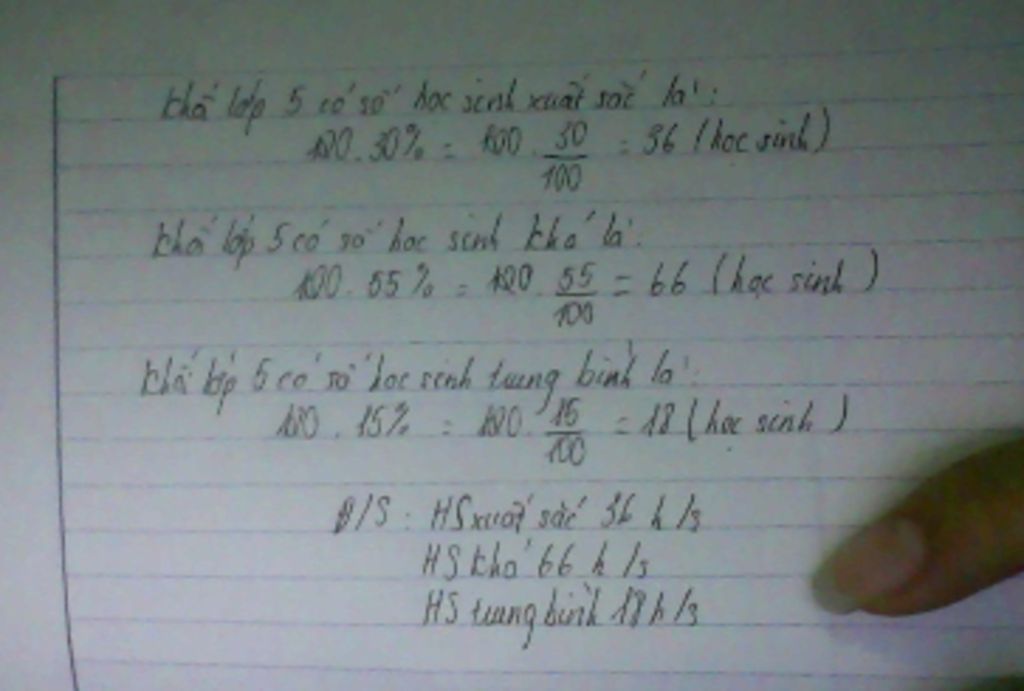 Khối lớp 5 có số học sinh xuất sắc là:
120.30% = 120. 30/100 = 36 (học sinh)
Khối lớp 5 có số học sinh khá là:
120.55% = 120. 55/100 = 66 (học sinh)
Khối lớp 5 có số học sinh trung bình là:
120.15% = 120. 15/100 = 18 (học sinh)
Đ/S: HS xuất sắc 36 h/s
HS khá 66 h/s
HS trung bình 18 h/s